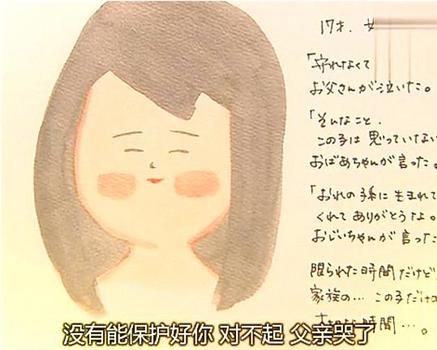 17才. 女
「守れなくて
お父さんが泣いた。
「そんなこと、
この子は思っていない
おばあちゃんが言った。
「おれの孫に生まれて
くれてありがとうよ。
おじいちゃんが言った
限られた時間だけど
家族の… この子だけの
時間…。
没有能保护好你 对不起 父亲哭了